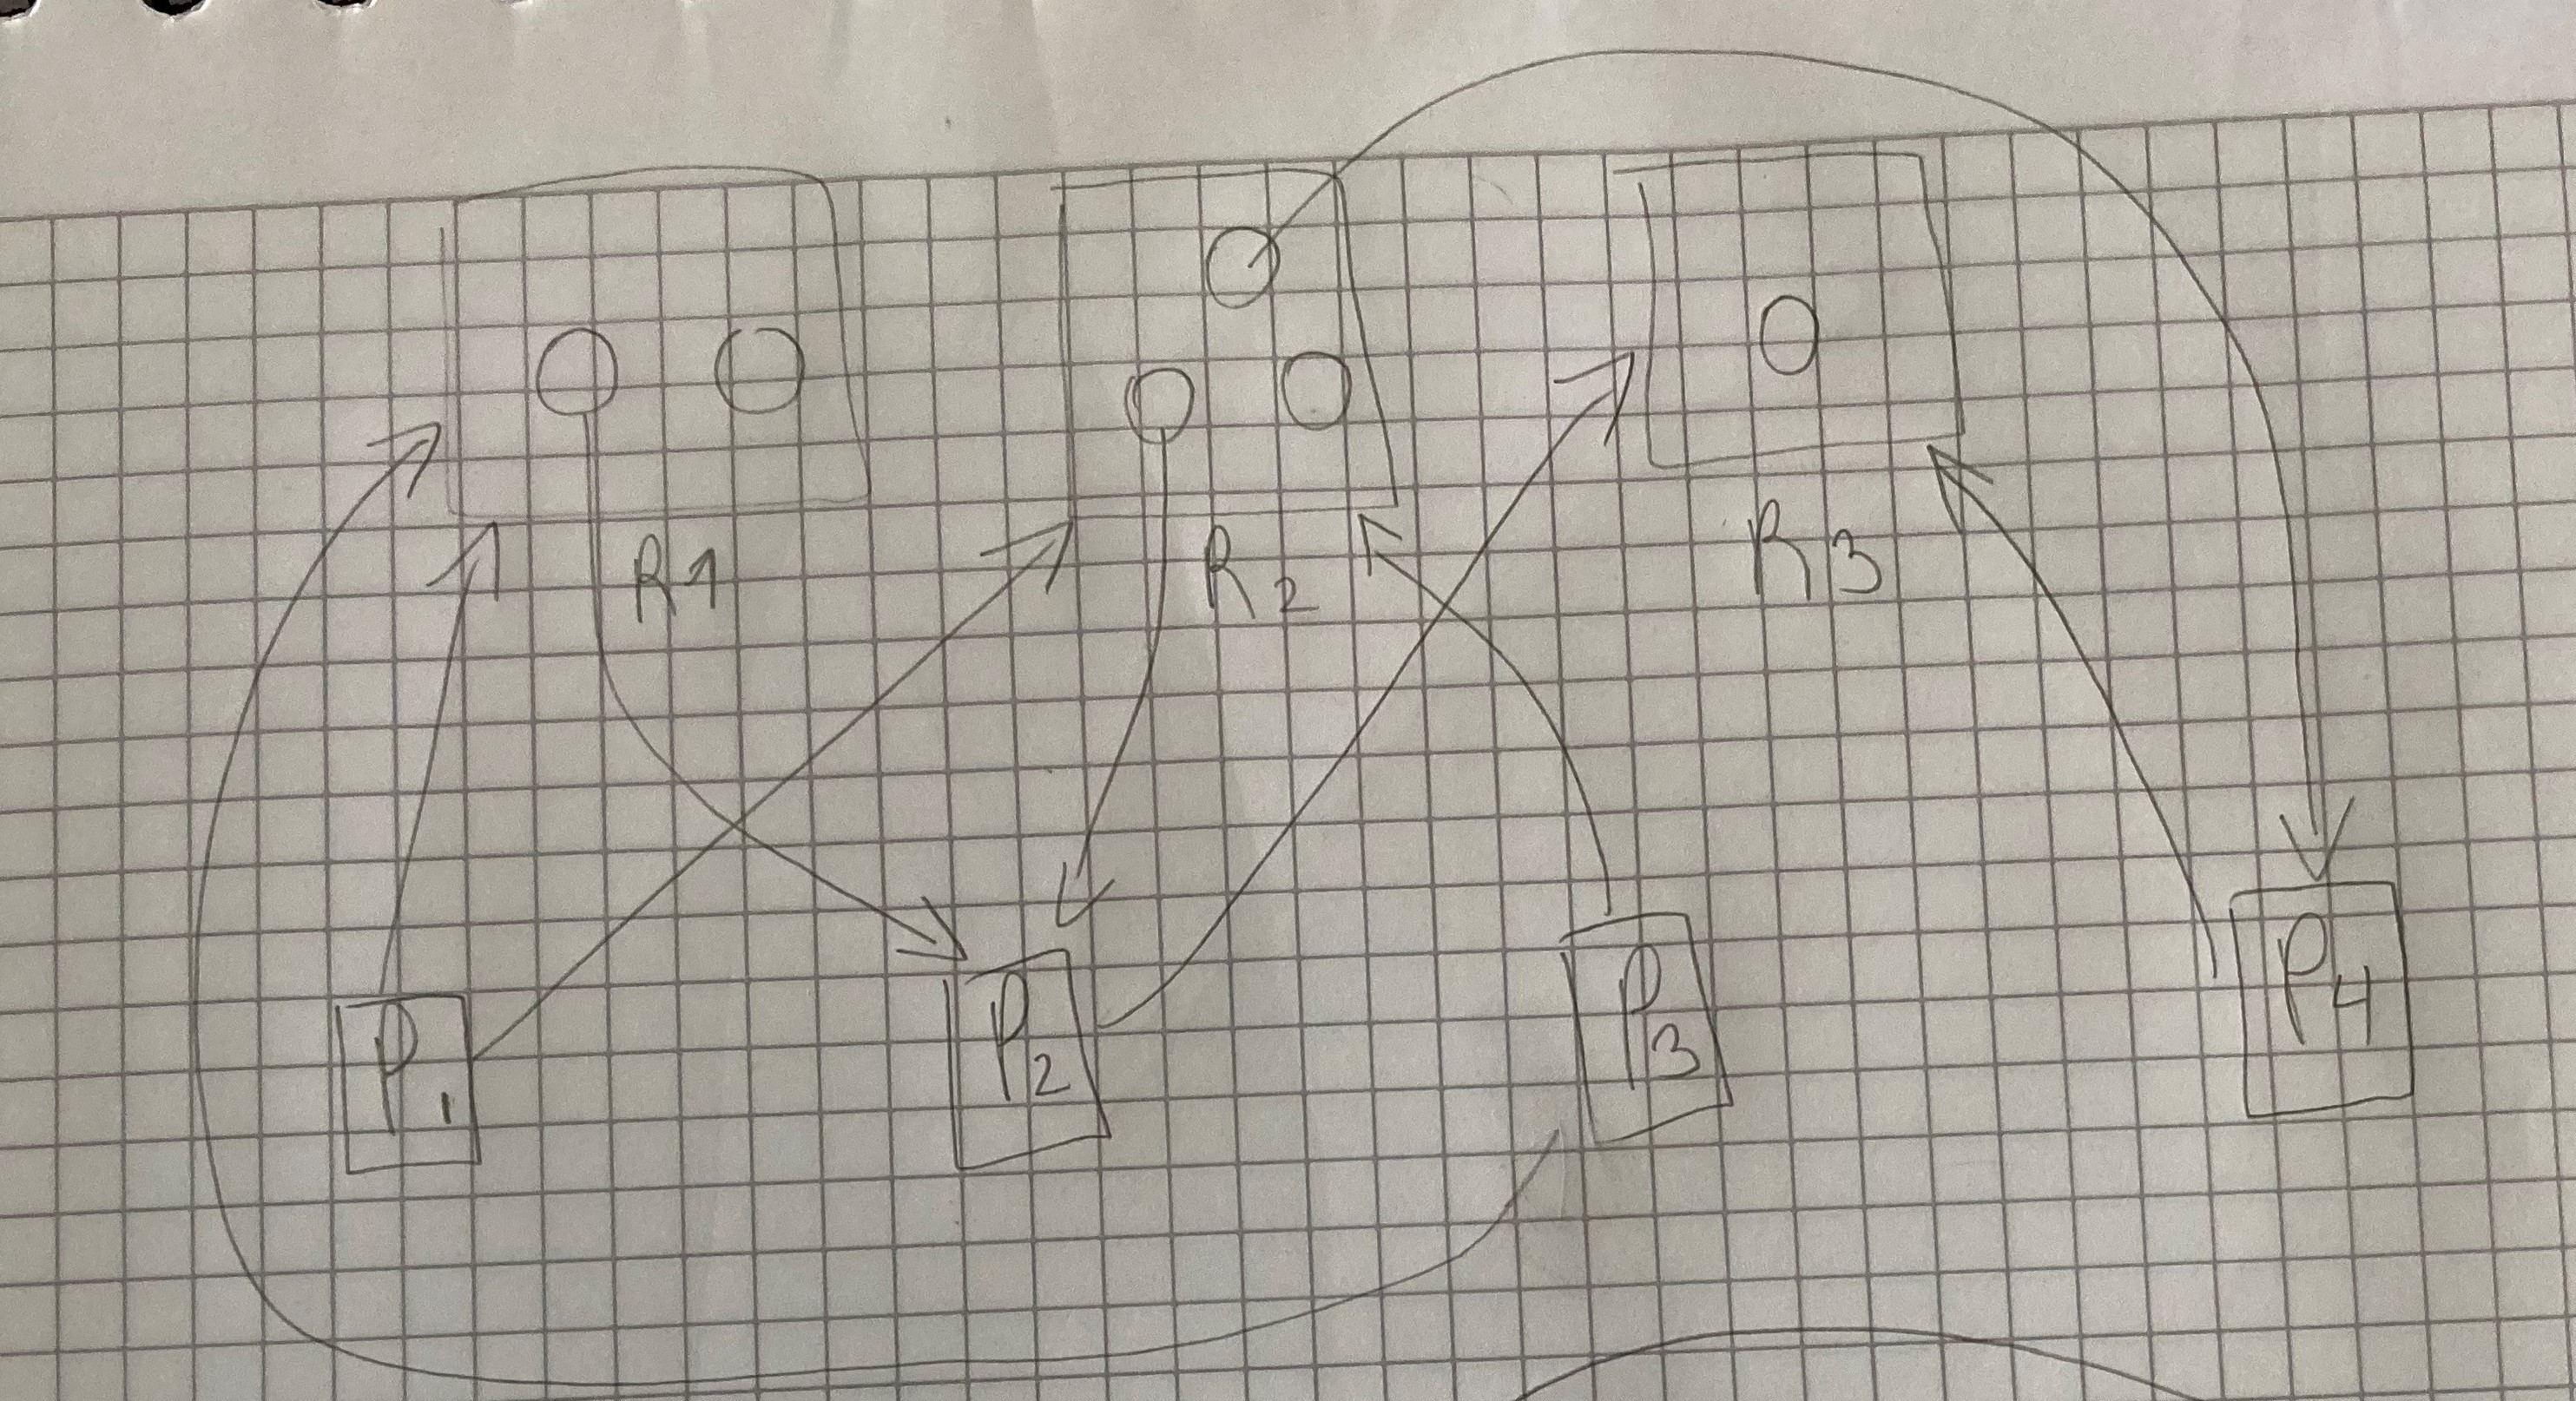 R1 R2 R3
P1 P2 P3 P4